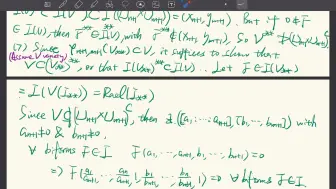 I(V) ⊂ I(V) ⊂ I(U_{m+1}×U_{n+1}) = (X_{m+1}, Y_{n+1}). But if 0≠F
∈ I(V), then F** ∈ I(V)** with F** ∉ (X_{m+1}, Y_{n+1}), so V**
(7) Since φ_{m+1,n+1}(V**) ⊂ V, it suffices to show that
(Assume V variety) V ⊂ (V**)**, or that I(V**)** ⊂ I(V). Let F ∈ I(V**)
= I(V(I**)) = Rad(I**)
Since V ⊄ (U_{m+1}×U_{n+1})^C, then ∃ ([a_1:⋯:a_{m+1}], [b_1,⋯,b_{n+1}]) with
a_{m+1}≠0 & b_{n+1}≠0,
∀ biforms F∈I F(a_1,⋯,a_{m+1}, b_1,⋯,b_{n+1})=0
⇒ F(a_1/a_{m+1},⋯,a_m/a_{m+1}, 1, b_1/b_{n+1},⋯,b_n/b_{n+1}, 1)=0 ∀ biforms F∈I